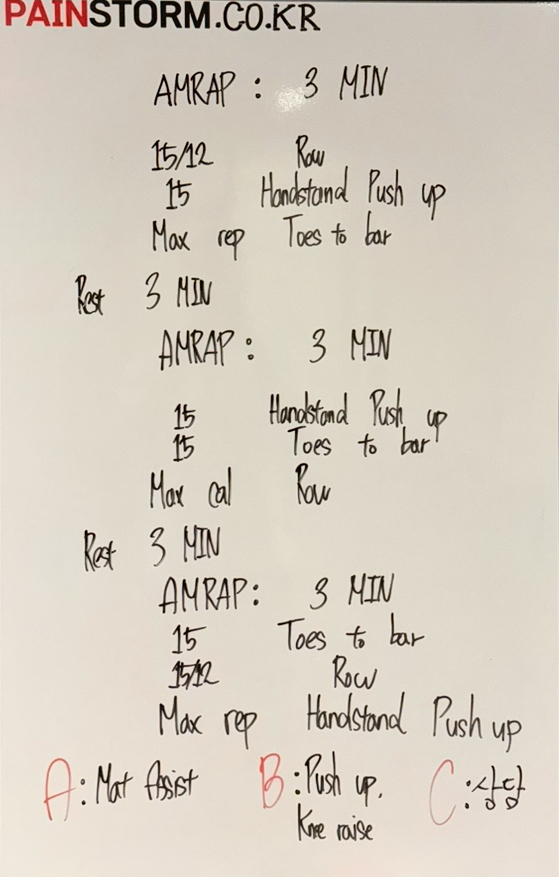 PAINSTORM.CO.KR
AMRAP : 3 MIN
15/12 Row
15 Handstand Push up
Max rep Toes to bar
Rest 3 MIN
AMRAP : 3 MIN
15 Handstand Push up
15 Toes to bar
Max cal Row
Rest 3 MIN
AMRAP: 3 MIN
15 Toes to bar
15/12 Row
Max rep Handstand Push up
A: Mat Assist B: Push up, C:상담
Knee raise